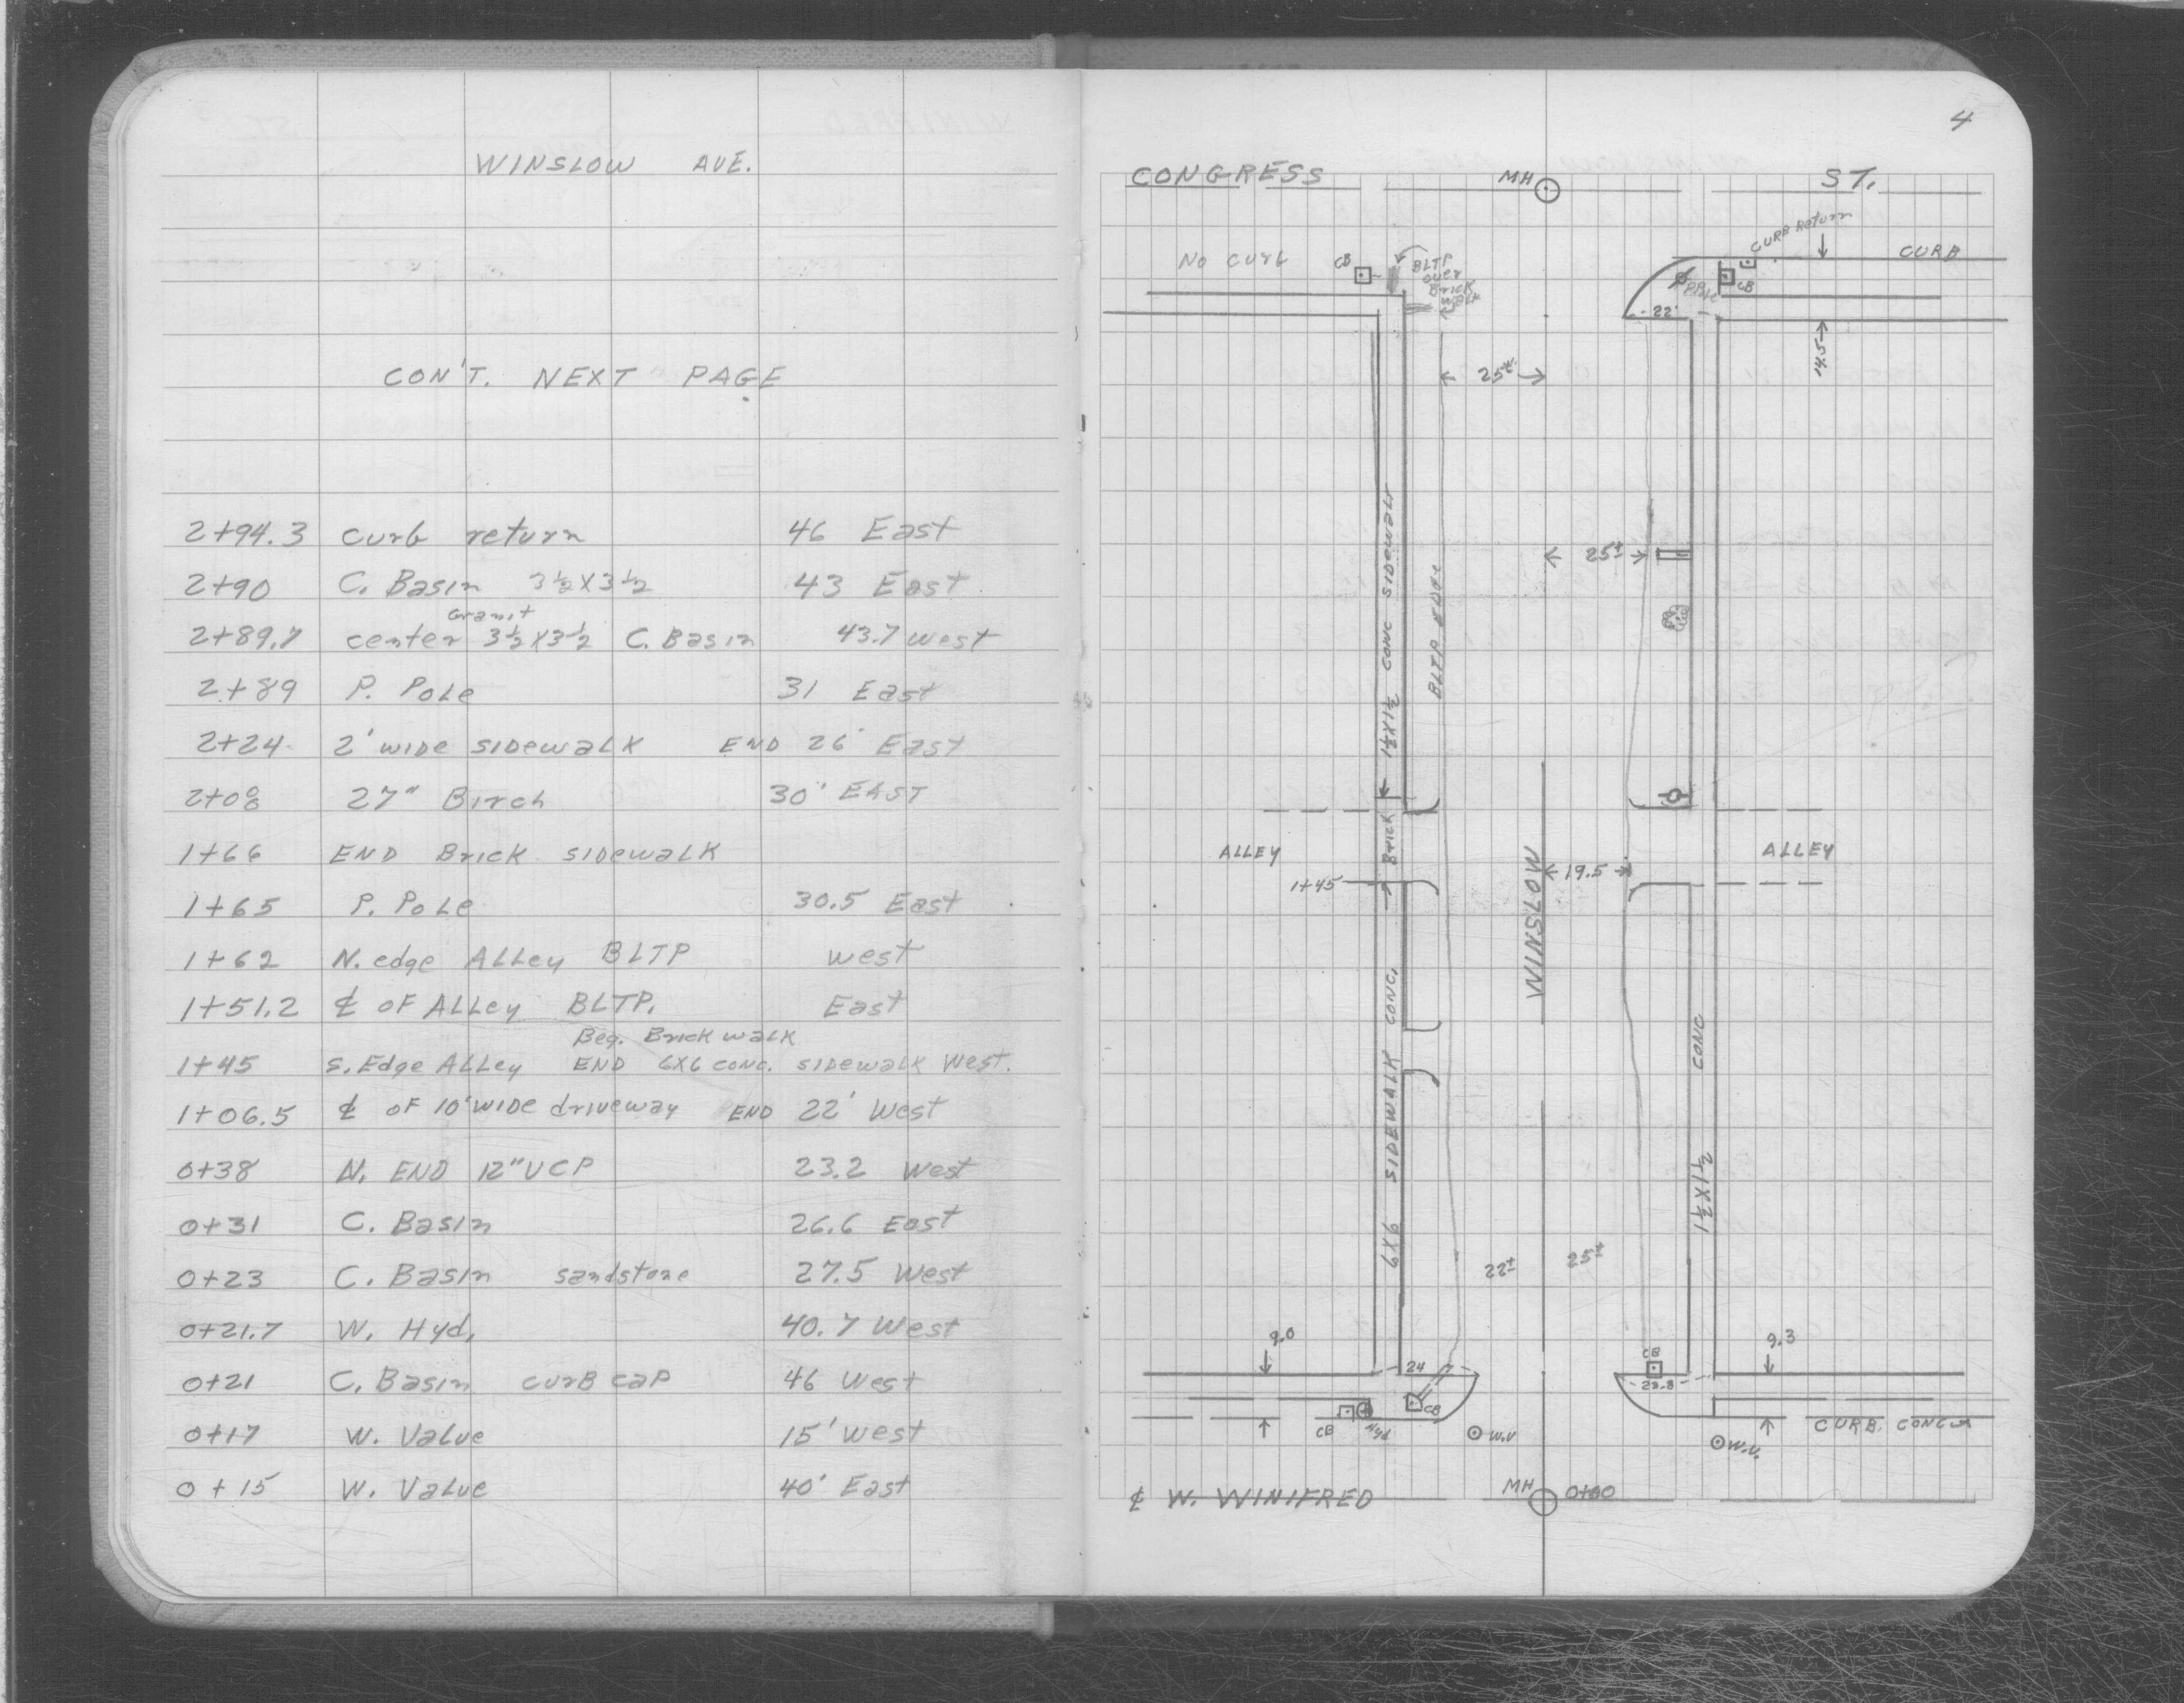 WINSLOW AVE.
CON'T. NEXT PAGE
2+94.3 curb return 46 East
2+90 C. Basin 3½X3½ 43 East
Granit
2+89.7 center 3½X3½ C. Basin 43.7 west
2+89 P. Pole 31 East
2+24 2' wide sidewalk END 26' East
2+08 27" Birch 30' EAST
1+66 END Brick sidewalk
1+65 P. Pole 30.5 East
1+62 N. edge Alley BLTP west
1+51.2 ℄ OF Alley BLTP. East
Beg. Brick walk
1+45 S. Edge Alley END 6X6 conc. sidewalk West.
1+06.5 ℄ OF 10' wide driveway END 22' West
0+38 N. END 12" VCP 23.2 West
0+31 C. Basin 26.6 East
0+23 C. Basin sandstone 27.5 West
0+21.7 W. Hyd. 40.7 West
0+21 C. Basin curb cap 46 West
0+17 W. Value 15' West
0+15 W. Value 40' East
4
CONGRESS MH ST.
Curb Return
No Curb CB BLTP over Brick walk
CURB
P.Pole CB
22'
14.5
25±
25±
1½X1½ CONC SIDEWALK
BLTP EDGE
ALLEY BRICK WINSLOW 19.5 ALLEY
1+45
6X6 SIDEWALK CONC.
1½X1½ CONC
22± 25±
9.0 9.3
CB
24 23.8
CB Hyd CB W.V W.V.
CURB CONC
℄ W. WINIFRED MH 0+00